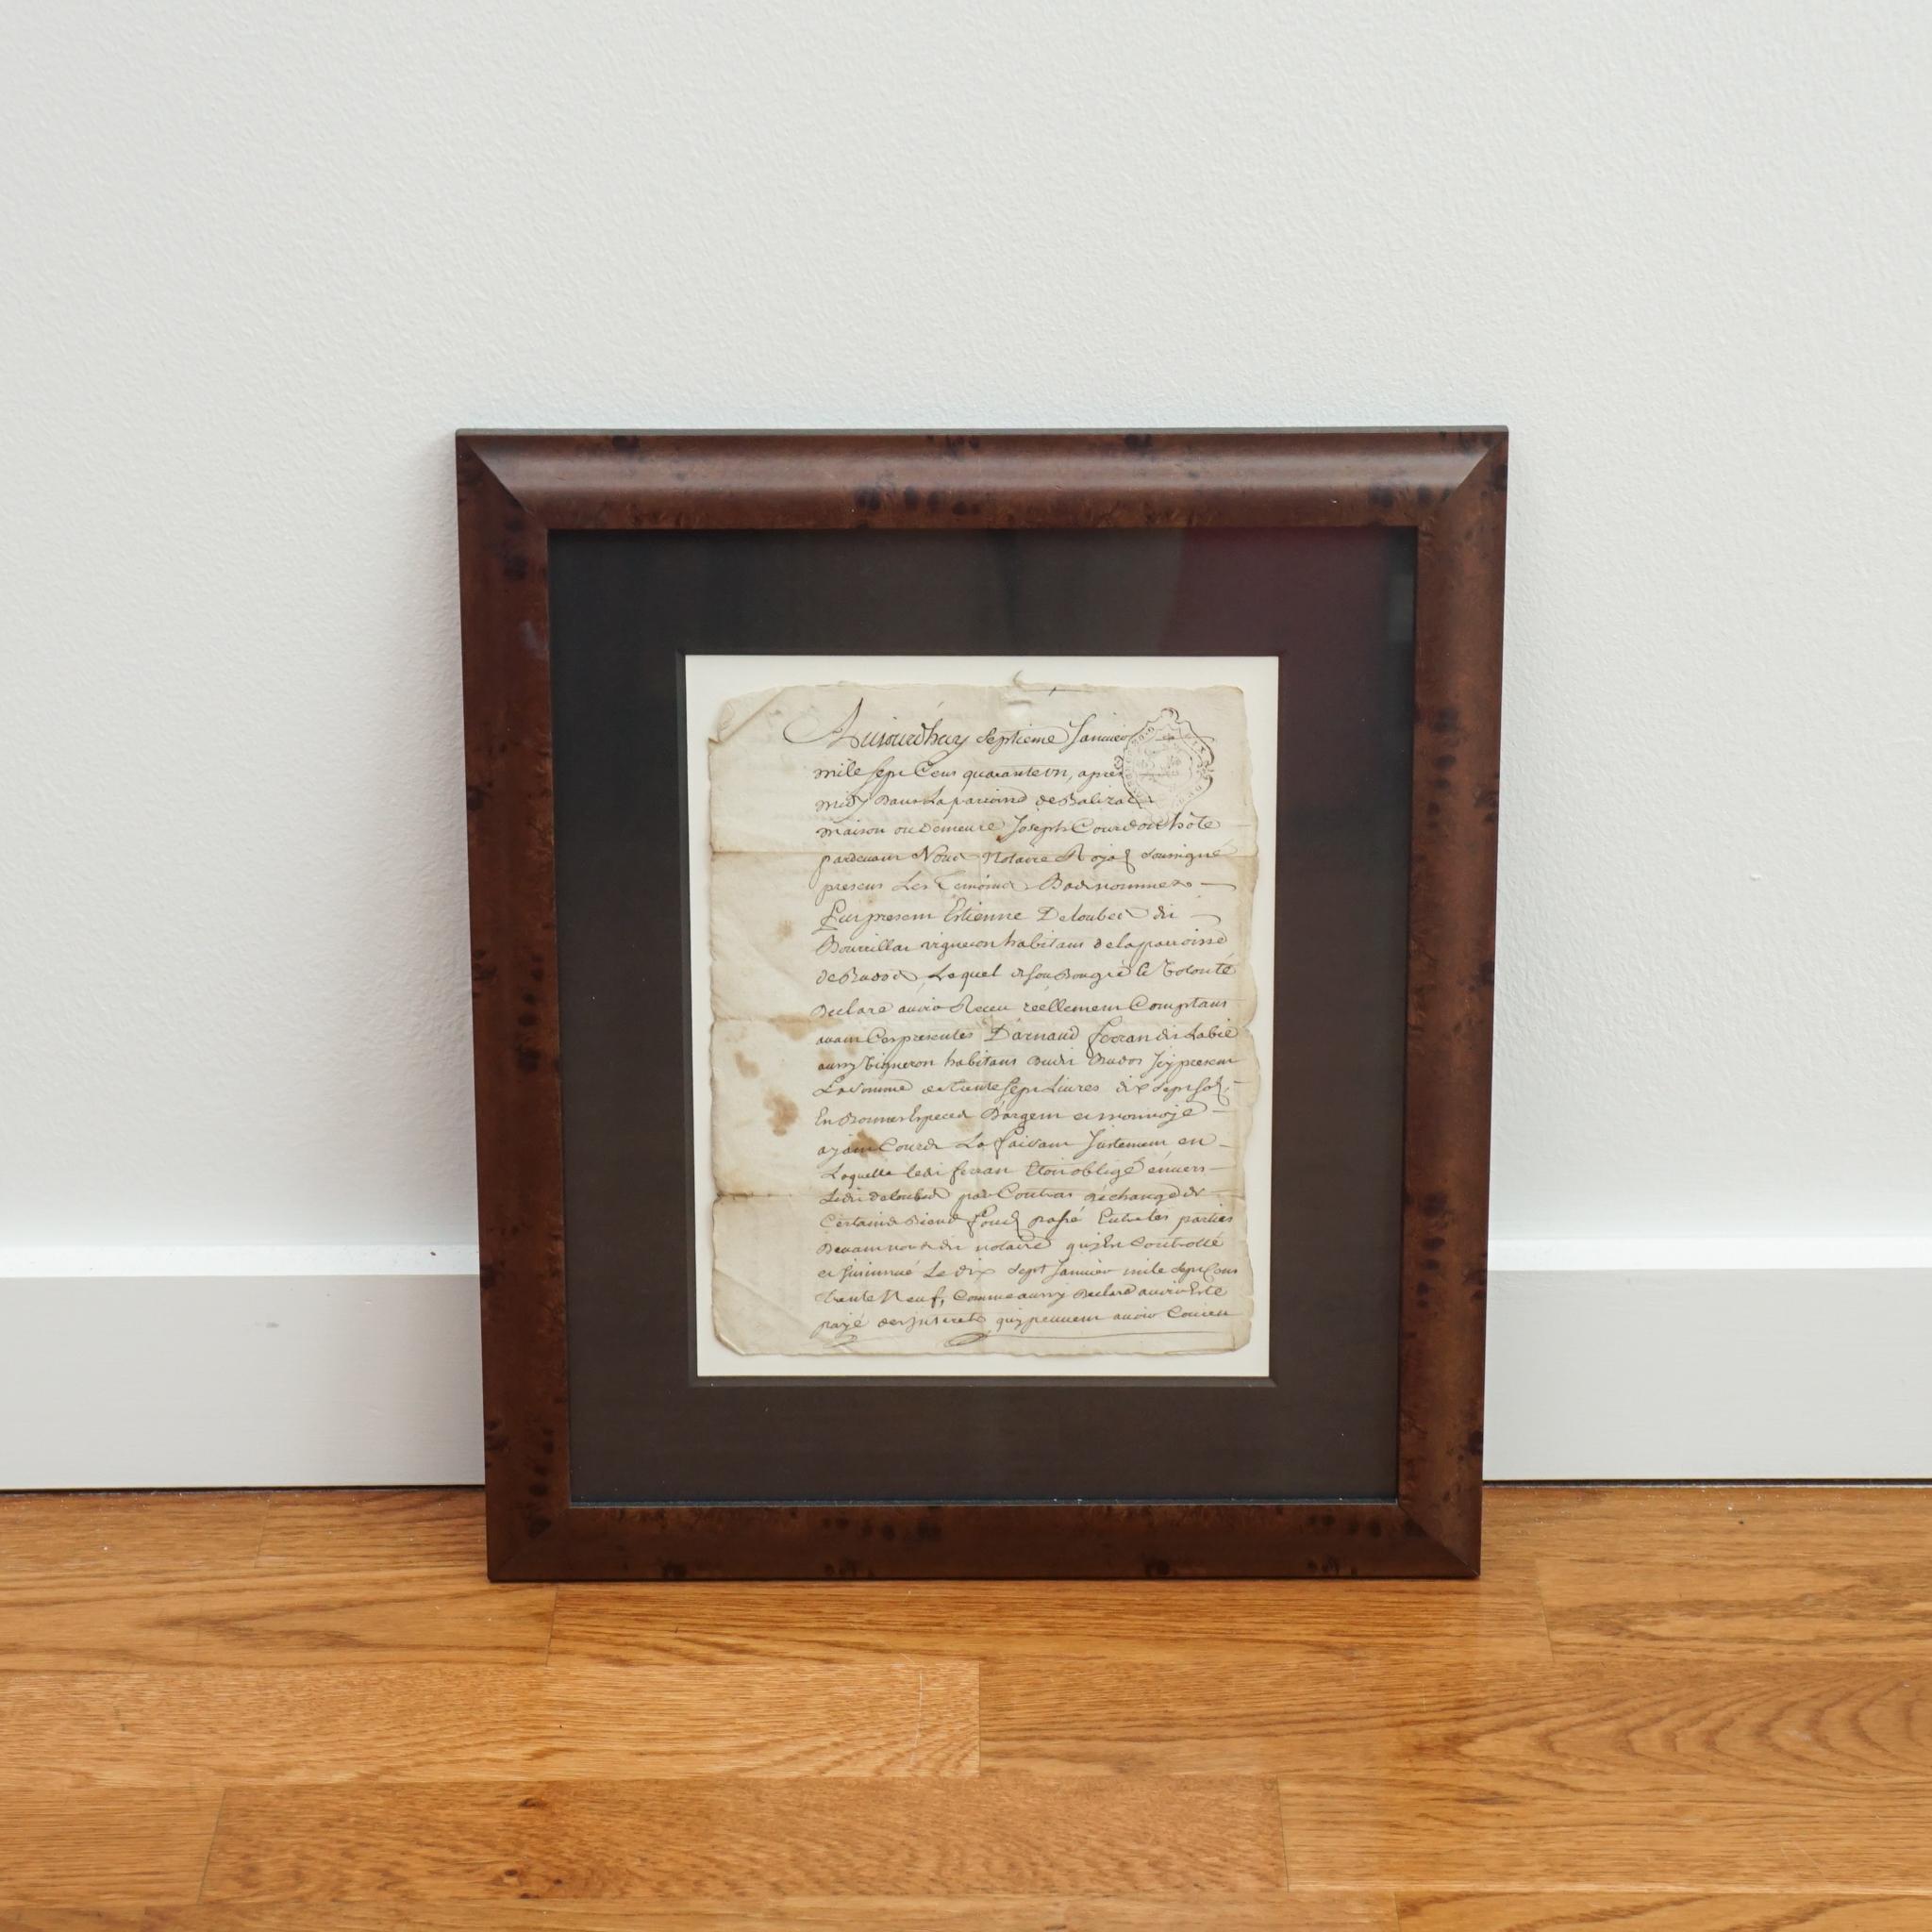 Aujourdhuy septieme Januier
mile sept Cens quarante vn, apres
midy Dans La parroisse de Balizac
maison ou Demeure Joseph Courdoit hôte
pardeuant Nous Notaire Royal soussigné
presens Les Temoins Bas nommes
fut present Estienne Deloubes dit
vigneron habitant de la parroisse
de Budos, Lequel de son Bon gré & Volonté
Declare auoir Receu reellement Comptant
auant Ces presentes D'arnaud ferran dit Labié
aussy Vigneron habitant dudit Budos Jcy present
La somme de trente sept Liures dix sept sols
En Bonnes Especes D'argent et monnoje
ajant Cours La faisant Justement en
Laquelle ledit ferran Etoit obligé enuers
Ledit deloubes par Contrat déchange de
Certains Biens fonds passé Entre les parties
Deuant notaire qui fut Controllé
et Jnsinué Le dix sept Januier mile sept Cens
trente Neuf, Comme aussy Declare auoir Esté
payé des Jnterets qui peuuent auoir Couru